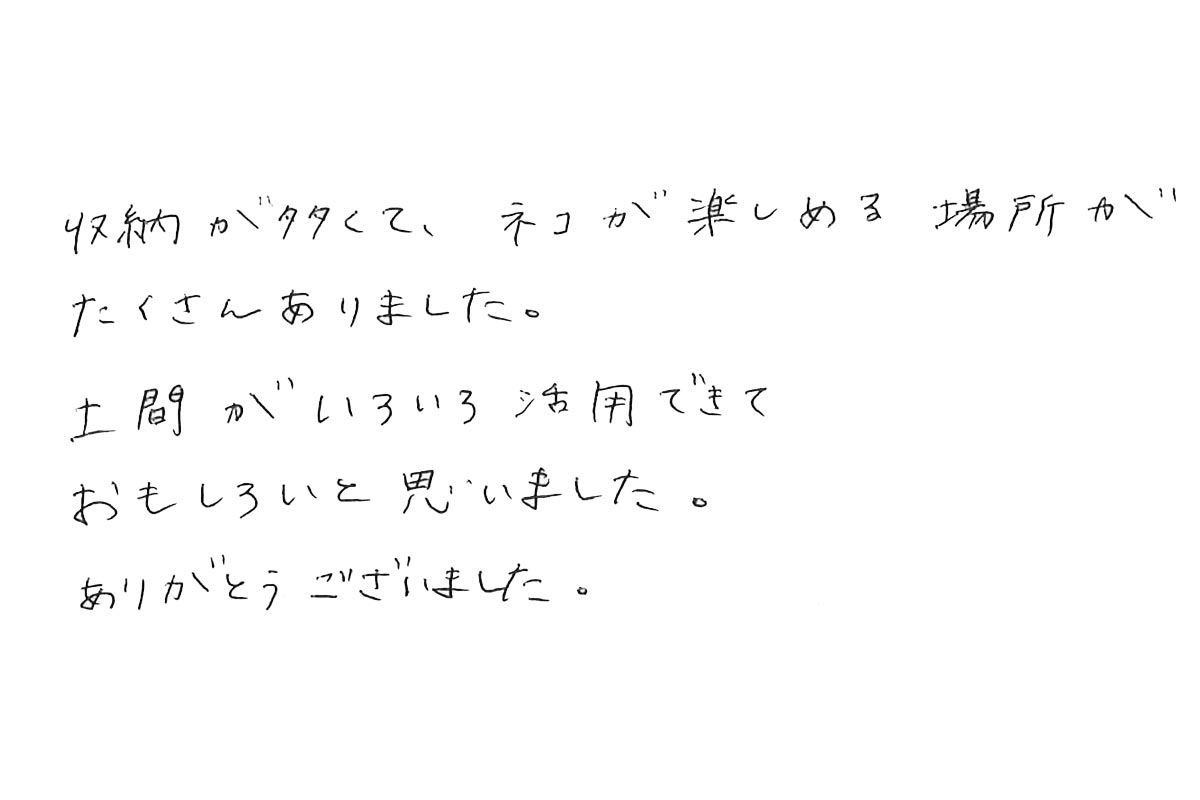 収納が多くて、ネコが楽しめる場所が
たくさんありました。
土間がいろいろ活用できて
おもしろいと思いました。
ありがとうございました。